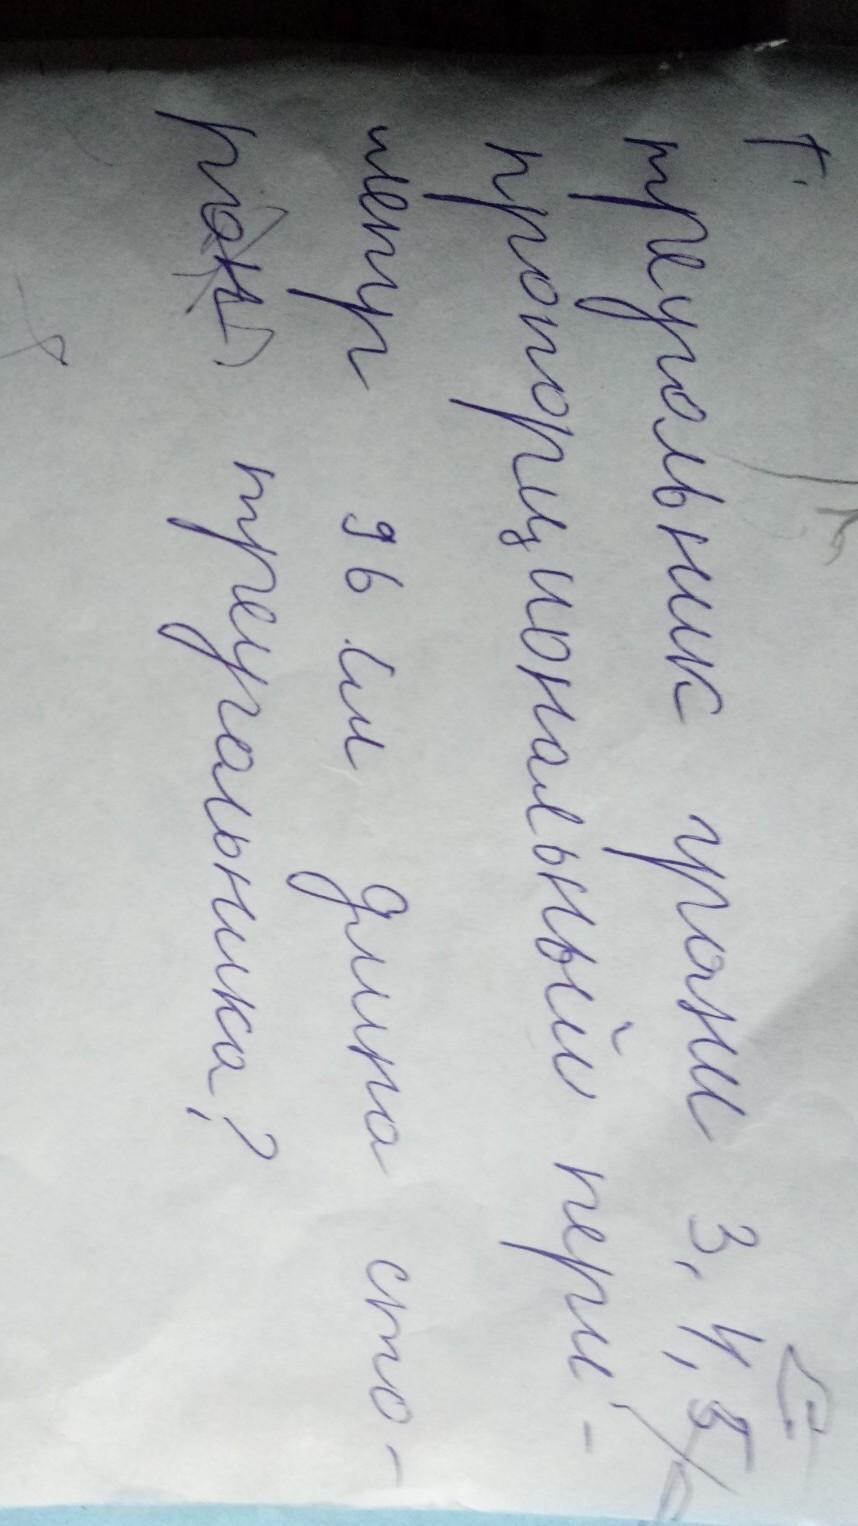 треугольник грани 3, 4, 5
пропорциональный пери-
метр 96 см длина сто-
рон треугольника?